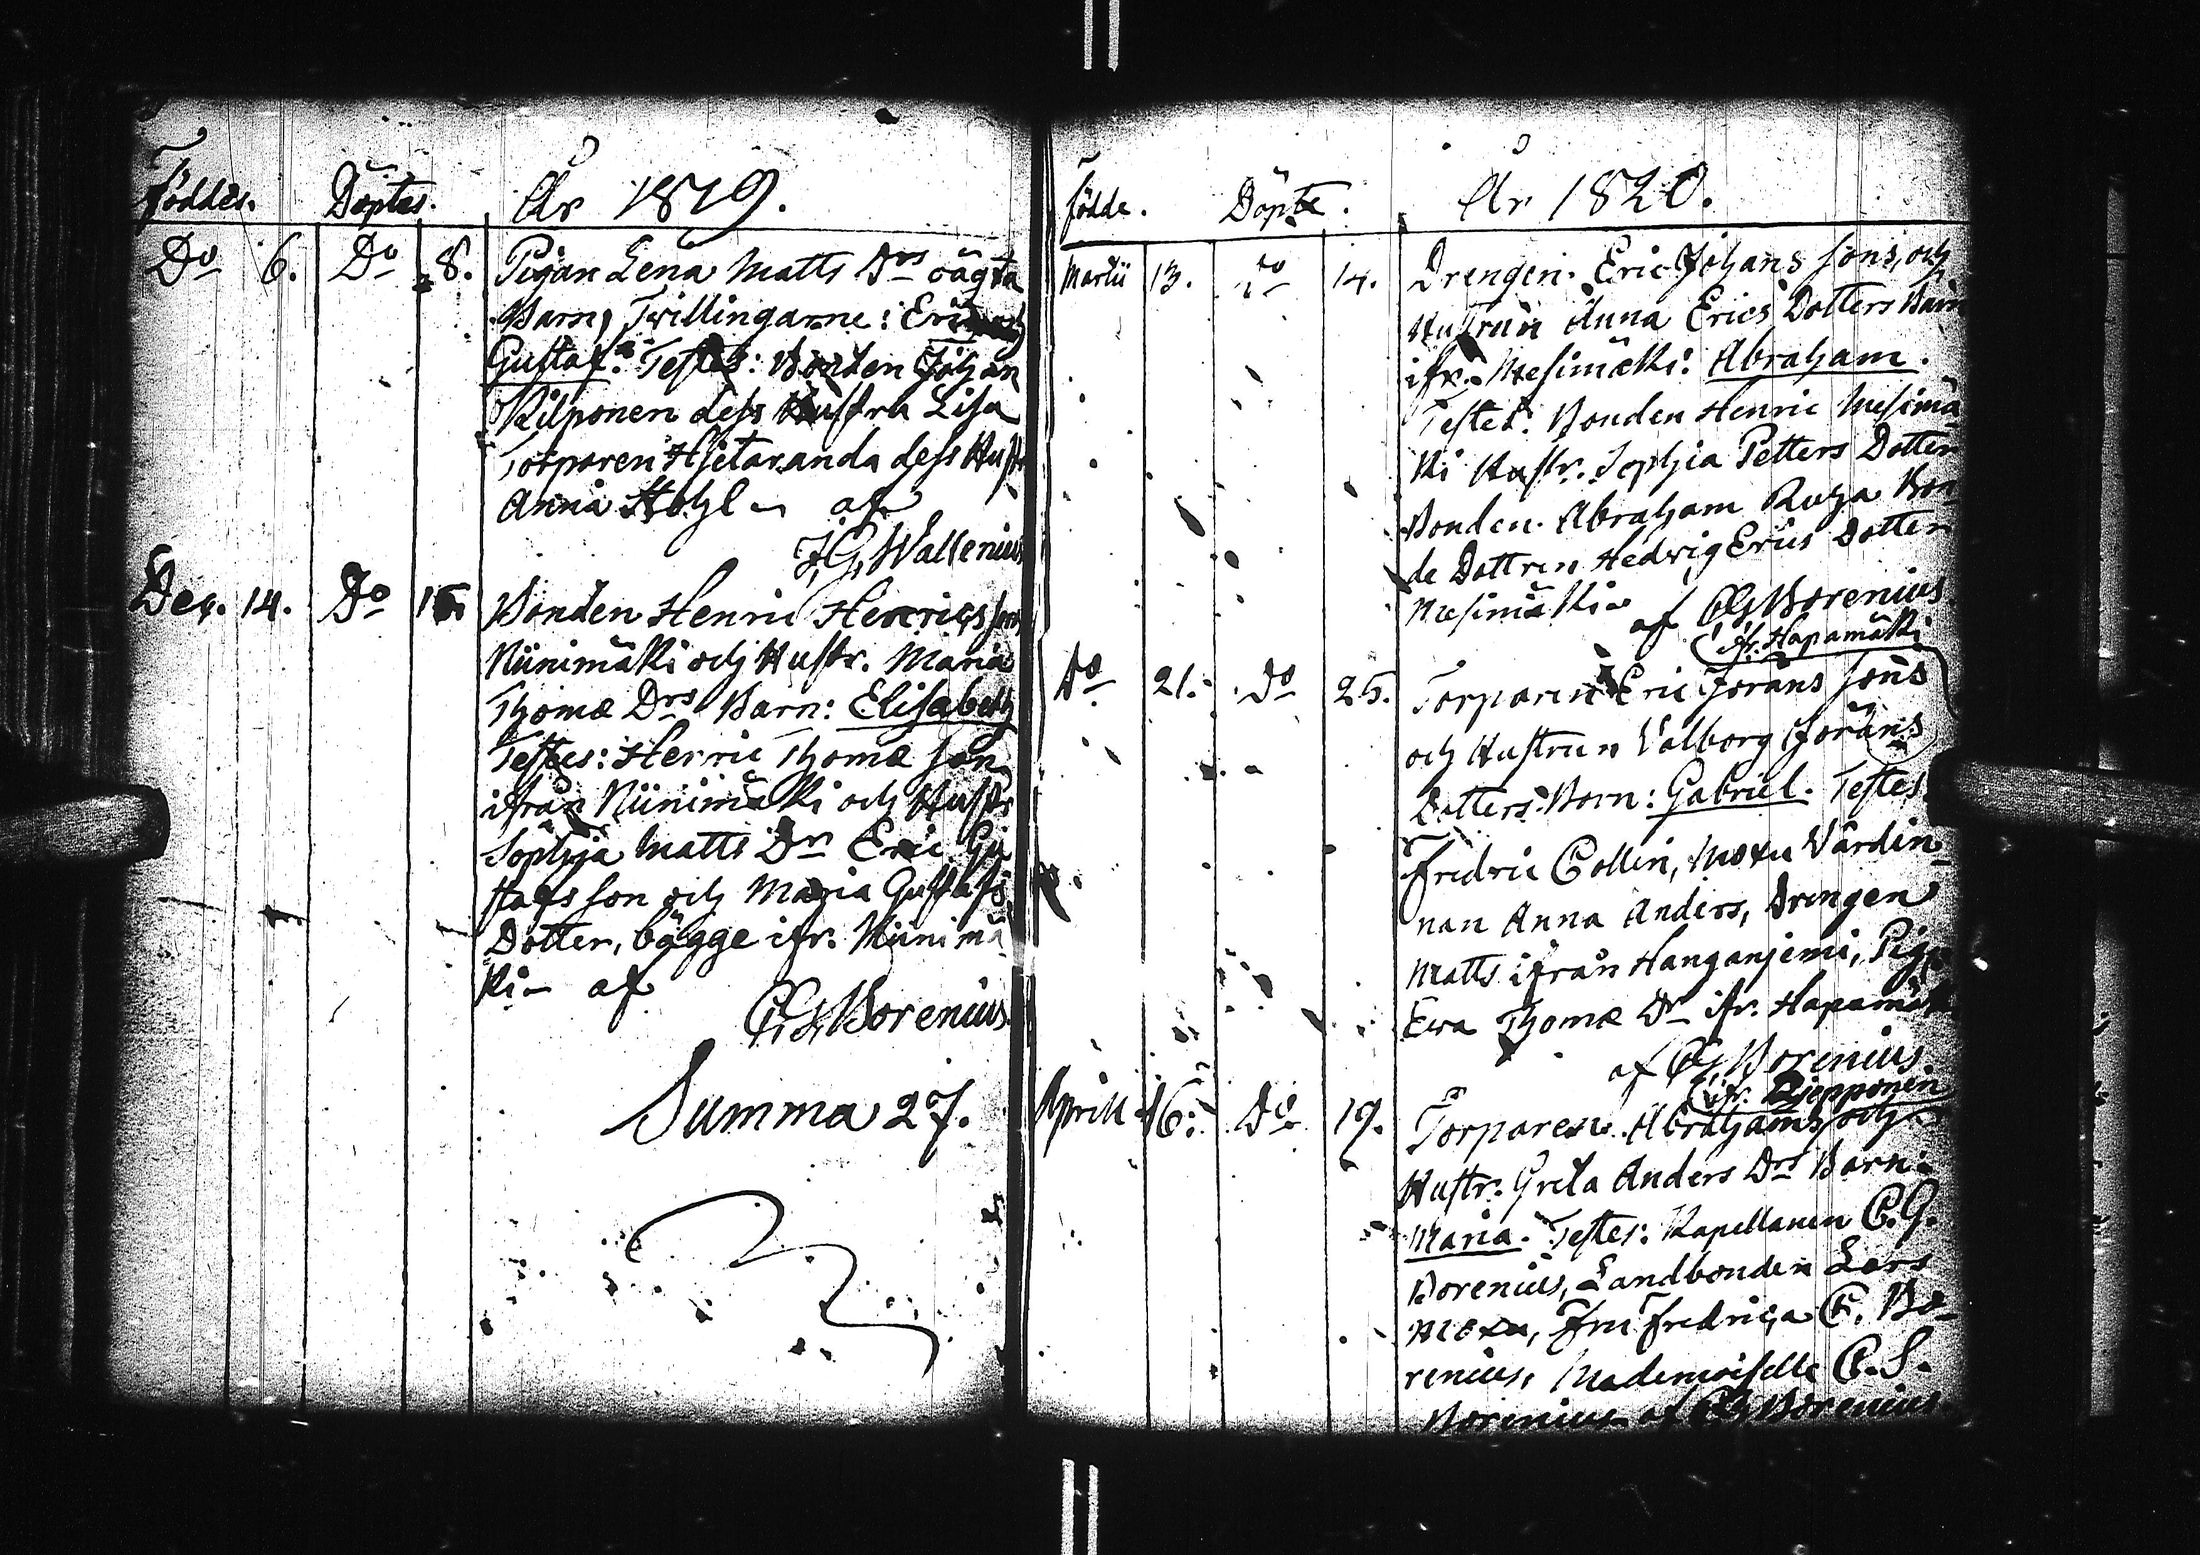 Föddes. Döptes. År 1819.
Do 6. Do 8. Pigan Lena Matts Drs oägta
Barn, Twillingarne: Eric och
Gustaf. Testes: Bonden Johan
Kilponen dess Hustru Lisa
Torparen Hietaranda dess Hustr
Anna af
J. G. Wallenius
Dec. 14. Do 15. Bonden Henric Henrics son
Niinimäki och Hustr. Maria
Thomæ Drs Barn: Elisabeth
Testes: Henric Thomæ son
ifrån Niinimäki och Hustr
Sophja Matts Dr Eric Gu
stafs son och Maria Gustafs
Dotter, bägge ifr. Niinimä
ki – af
C. G. Borenius.
Summa 27.
födde. Döpte. År 1820.
Martii 13. Do 14. Drengen Eric Johans sons, och
Hustrun Anna Erics Dotters Barn
ifr. Mesimæki: Abraham.
Testes. Bonden Henric Mesimä
ki Hustr. Sophia Petters Dotter
Bonden Abraham Bon
de Dottren Hedvig Erics Dotter
Mesimäki af CG Borenius
ifr. Hapamäki
Do 21. Do 25. Torparen Eric Jörans sons
och Hustrun Valborg Jörans
Dotters Barn: Gabriel. Testes.
Fredric Collin, Moxu Värdin-
nan Anna Anders, Drengen
Matts ifrån Hanganjemi, Pig.
Eva Thomæ Dr ifr. Hapamäk
af CG Borenius
ifr. Piepponen
Aprill 16. Do 19. Torparen Abrahams och
Hustr. Greta Anders Drs Barn:
Maria. Testes: Kapellanen C. G.
Borenius, Landbonden Lars
Moxu, Fru Fredrica C. Bo-
renius, Mademoiselle C. S.
Borenius af CG Borenius.